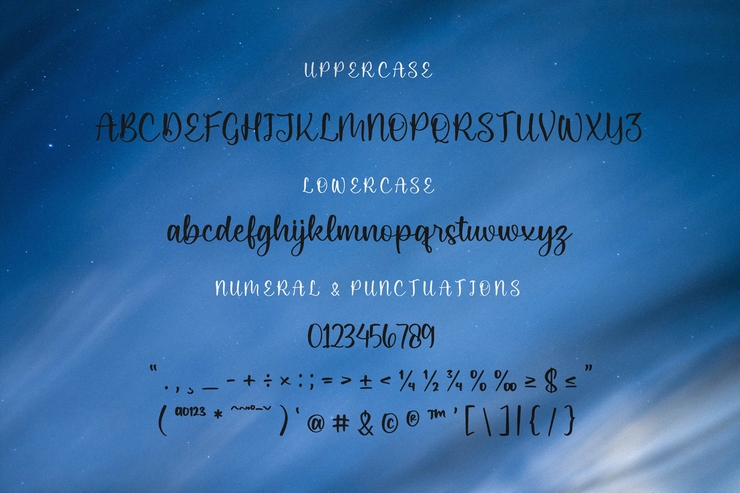 UPPERCASE
ABCDEFGHIJKLMNOPQRSTUVWXYZ
LOWERCASE
abcdefghijklmnopqrstuvwxyz
NUMERAL & PUNCTUATIONS
0123456789
“ . , ¸ _ - + ÷ × : ; = > ± < ¼ ½ ¾ % ‰ ≥ $ ≤ ”
( ªº¹²³ * ) ‘ @ # & © ® ™ ’ [ \ ] | { / }